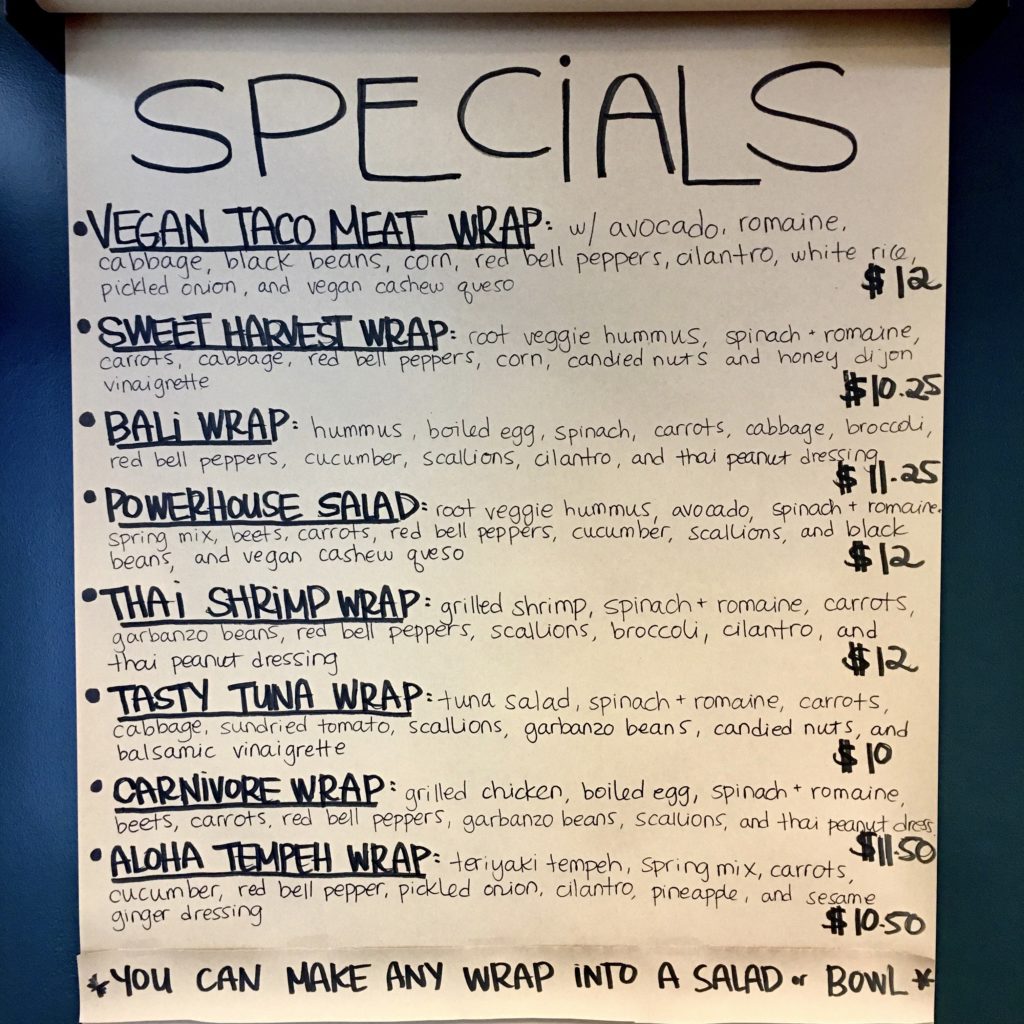 SPECiALS
• VEGAN TACO MEAT WRAP: w/ avocado, romaine,
cabbage, black beans, corn, red bell peppers, cilantro, white rice,
pickled onion, and vegan cashew queso
$12
• SWEET HARVEST WRAP: root veggie hummus, spinach + romaine,
carrots, cabbage, red bell peppers, corn, candied nuts and honey dijon
vinaigrette
$10.25
• BALi WRAP: hummus, boiled egg, spinach, carrots, cabbage, broccoli,
red bell peppers, cucumber, scallions, cilantro, and thai peanut dressing
$11.25
• POWERHOUSE SALAD: root veggie hummus, avocado, spinach + romaine.
spring mix, beets, carrots, red bell peppers, cucumber, scallions, and black
beans, and vegan cashew queso
$12
• THAi SHRiMP WRAP: grilled shrimp, spinach + romaine, carrots,
garbanzo beans, red bell peppers, scallions, broccoli, cilantro, and
thai peanut dressing
$12
• TASTY TUNA WRAP: tuna salad, spinach + romaine, carrots,
cabbage, sundried tomato, scallions, garbanzo beans, candied nuts, and
balsamic vinaigrette
$10
• CARNiVORE WRAP: grilled chicken, boiled egg, spinach + romaine,
beets, carrots, red bell peppers, garbanzo beans, scallions, and thai peanut dress.
$11.50
• ALOHA TEMPEH WRAP: teriyaki tempeh, spring mix, carrots,
cucumber, red bell pepper, pickled onion, cilantro, pineapple, and sesame
ginger dressing
$10.50
*YOU CAN MAKE ANY WRAP iNTO A SALAD or BOWL*